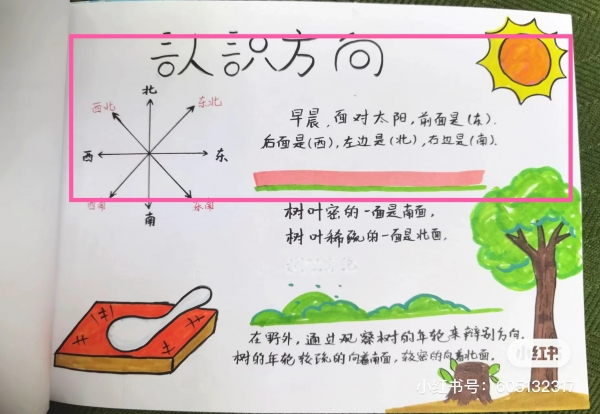 认识方向
北
西北
东北
西
东
西南
东南
南
早晨,面对太阳,前面是(东).
后面是(西),左边是(北),右边是(南).
树叶密的一面是南面,
树叶稀疏的一面是北面.
在野外,通过观察树的年轮来辩别方向.
树的年轮较疏的向着南面,较密的向着北面.
小红书
小红书号: 605132317